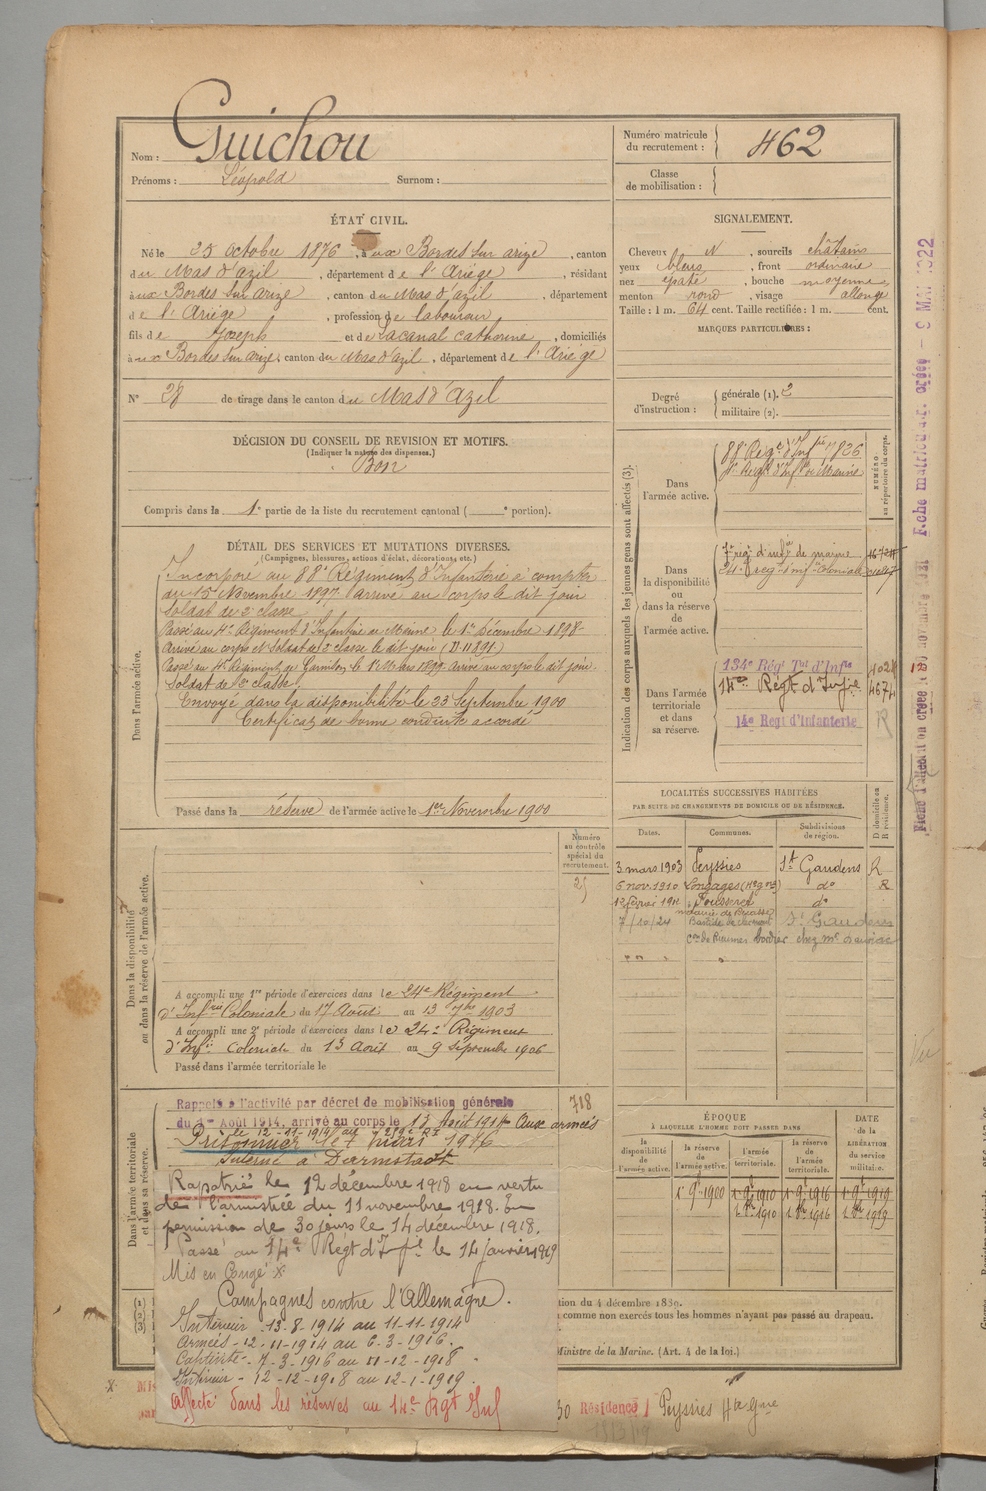 Nom : Guichou
Prénoms : Léopold Surnom :
Numéro matricule du recrutement : 462
Classe de mobilisation :
ÉTAT CIVIL.
Né le 25 octobre 1876, aux Bordes sur arize, canton
du Mas d'azil, département de l'Ariège, résidant
aux Bordes sur arize, canton du Mas d'azil, département
de l'Ariège, profession de laboureur
fils de Joseph et de Lacanal catherine, domiciliés
aux Bordes sur arize, canton du Mas d'azil, département de l'Ariege
N° 28 de tirage dans le canton du Mas d'Azil
SIGNALEMENT.
Cheveux N, sourcils châtains
yeux bleus, front ordinaire
nez épaté, bouche moyenne
menton rond, visage allongé
Taille : 1 m. 64 cent. Taille rectifiée : 1 m. cent.
MARQUES PARTICULIÈRES :
Degré d'instruction : générale (1). 2
militaire (2).
DÉCISION DU CONSEIL DE REVISION ET MOTIFS.
(Indiquer la nature des dispenses.)
Bon
Compris dans la 1e partie de la liste du recrutement cantonal ( e portion).
DÉTAIL DES SERVICES ET MUTATIONS DIVERSES.
(Campagnes, blessures, actions d'éclat, décorations, etc.)
Dans l'armée active.
Incorporé au 88e Régiment d'Infanterie à compter
du 15 Novembre 1897 arrivé au corps le dit jour
soldat de 2e classe
Passé au 4e Régiment d'Infanterie de Marine le 1er Décembre 1898
Arrivé au corps et Soldat de 2e classe le dit jour
Passé au 4e Régiment de le 1er Mars 1899 Arrivé au corps le dit jour.
Soldat de 2e classe.
Envoyé dans la disponibilité le 23 Septembre 1900
Certificat de bonne conduite accordé
Passé dans la réserve de l'armée active le 1er Novembre 1900
Indication des corps auxquels les jeunes gens sont affectés (3).
NUMÉRO au répertoire du corps.
Dans l'armée active.
88e Régt d'Infrie 7826
4e Regt d'Infie de Marine
Dans la disponibilité ou dans la réserve de l'armée active.
7e rég. d'infie de marine
24e reg. d'infie coloniale
Dans l'armée territoriale et dans sa réserve.
134e Régt Tal d'Infie
14e Régt d'Infie 4674
14e Regt d'Infanterie R
LOCALITÉS SUCCESSIVES HABITÉES
PAR SUITE DE CHANGEMENTS DE DOMICILE OU DE RÉSIDENCE.
Dates. Communes. Subdivisions de région. D domicile ou R résidence.
3 mars 1903 Peyssies St Gaudens R
6 nov. 1910 Longages (Hte Gne) do R
12 février 1911 Fousseret do
7/10/24 St Gaudens
Numéro au contrôle spécial du recrutement.
Dans la disponibilité ou dans la réserve de l'armée active.
A accompli une 1re période d'exercices dans le 24e Régiment
d'Infrie Coloniale du 17 Août au 13 7bre 1903
A accompli une 2e période d'exercices dans le 24e Régiment
d'Infie Coloniale du 13 Août au 9 Septembre 1906
Passé dans l'armée territoriale le
Dans l'armée territoriale et dans sa réserve.
718
Rappelé à l'activité par décret de mobilisation générale
du 1er Août 1914, arrivé au corps le 13 Août 1914 Aux armées
le 12-11-1914 au 219e RI
Prisonnier le 7 mars 1916
Interné à Darmstadt
Rapatrié le 12 décembre 1918 en vertu
de l'armistice du 11 novembre 1918. En
permission de 30 jours le 14 décembre 1918.
Passé au 14e Régt d'Infie le 14 janvier 1919
Mis en Congé x
Campagnes contre l'Allemagne.
Intérieur - 13-8-1914 au 11-11-1914
Armées - 12-11-1914 au 6-3-1916.
Captivité - 7-3-1916 au 11-12-1918
Intérieur - 12-12-1918 au 12-1-1919.
Affecté dans les réserves au 14e Rgt Inf
ÉPOQUE
À LAQUELLE L'HOMME DOIT PASSER DANS
la disponibilité de l'armée active. la réserve de l'armée active. l'armée territoriale. la réserve de l'armée territoriale. DATE de la LIBÉRATION du service militaire.
1er 9 1900 1er 9 1910 1er 9 1916 1er 9 1919
1er 8bre 1910 1er 8bre 1916 1er 8bre 1919
(1)
(2)
(3)
tion du 4 décembre 1889.
comme non exercés tous les hommes n'ayant pas passé au drapeau.
Ministre de la Marine. (Art. 4 de la loi.)
Résidence Peyssies Hte Gne
Fiche matricule créée - 9 MAI 1922
Vu